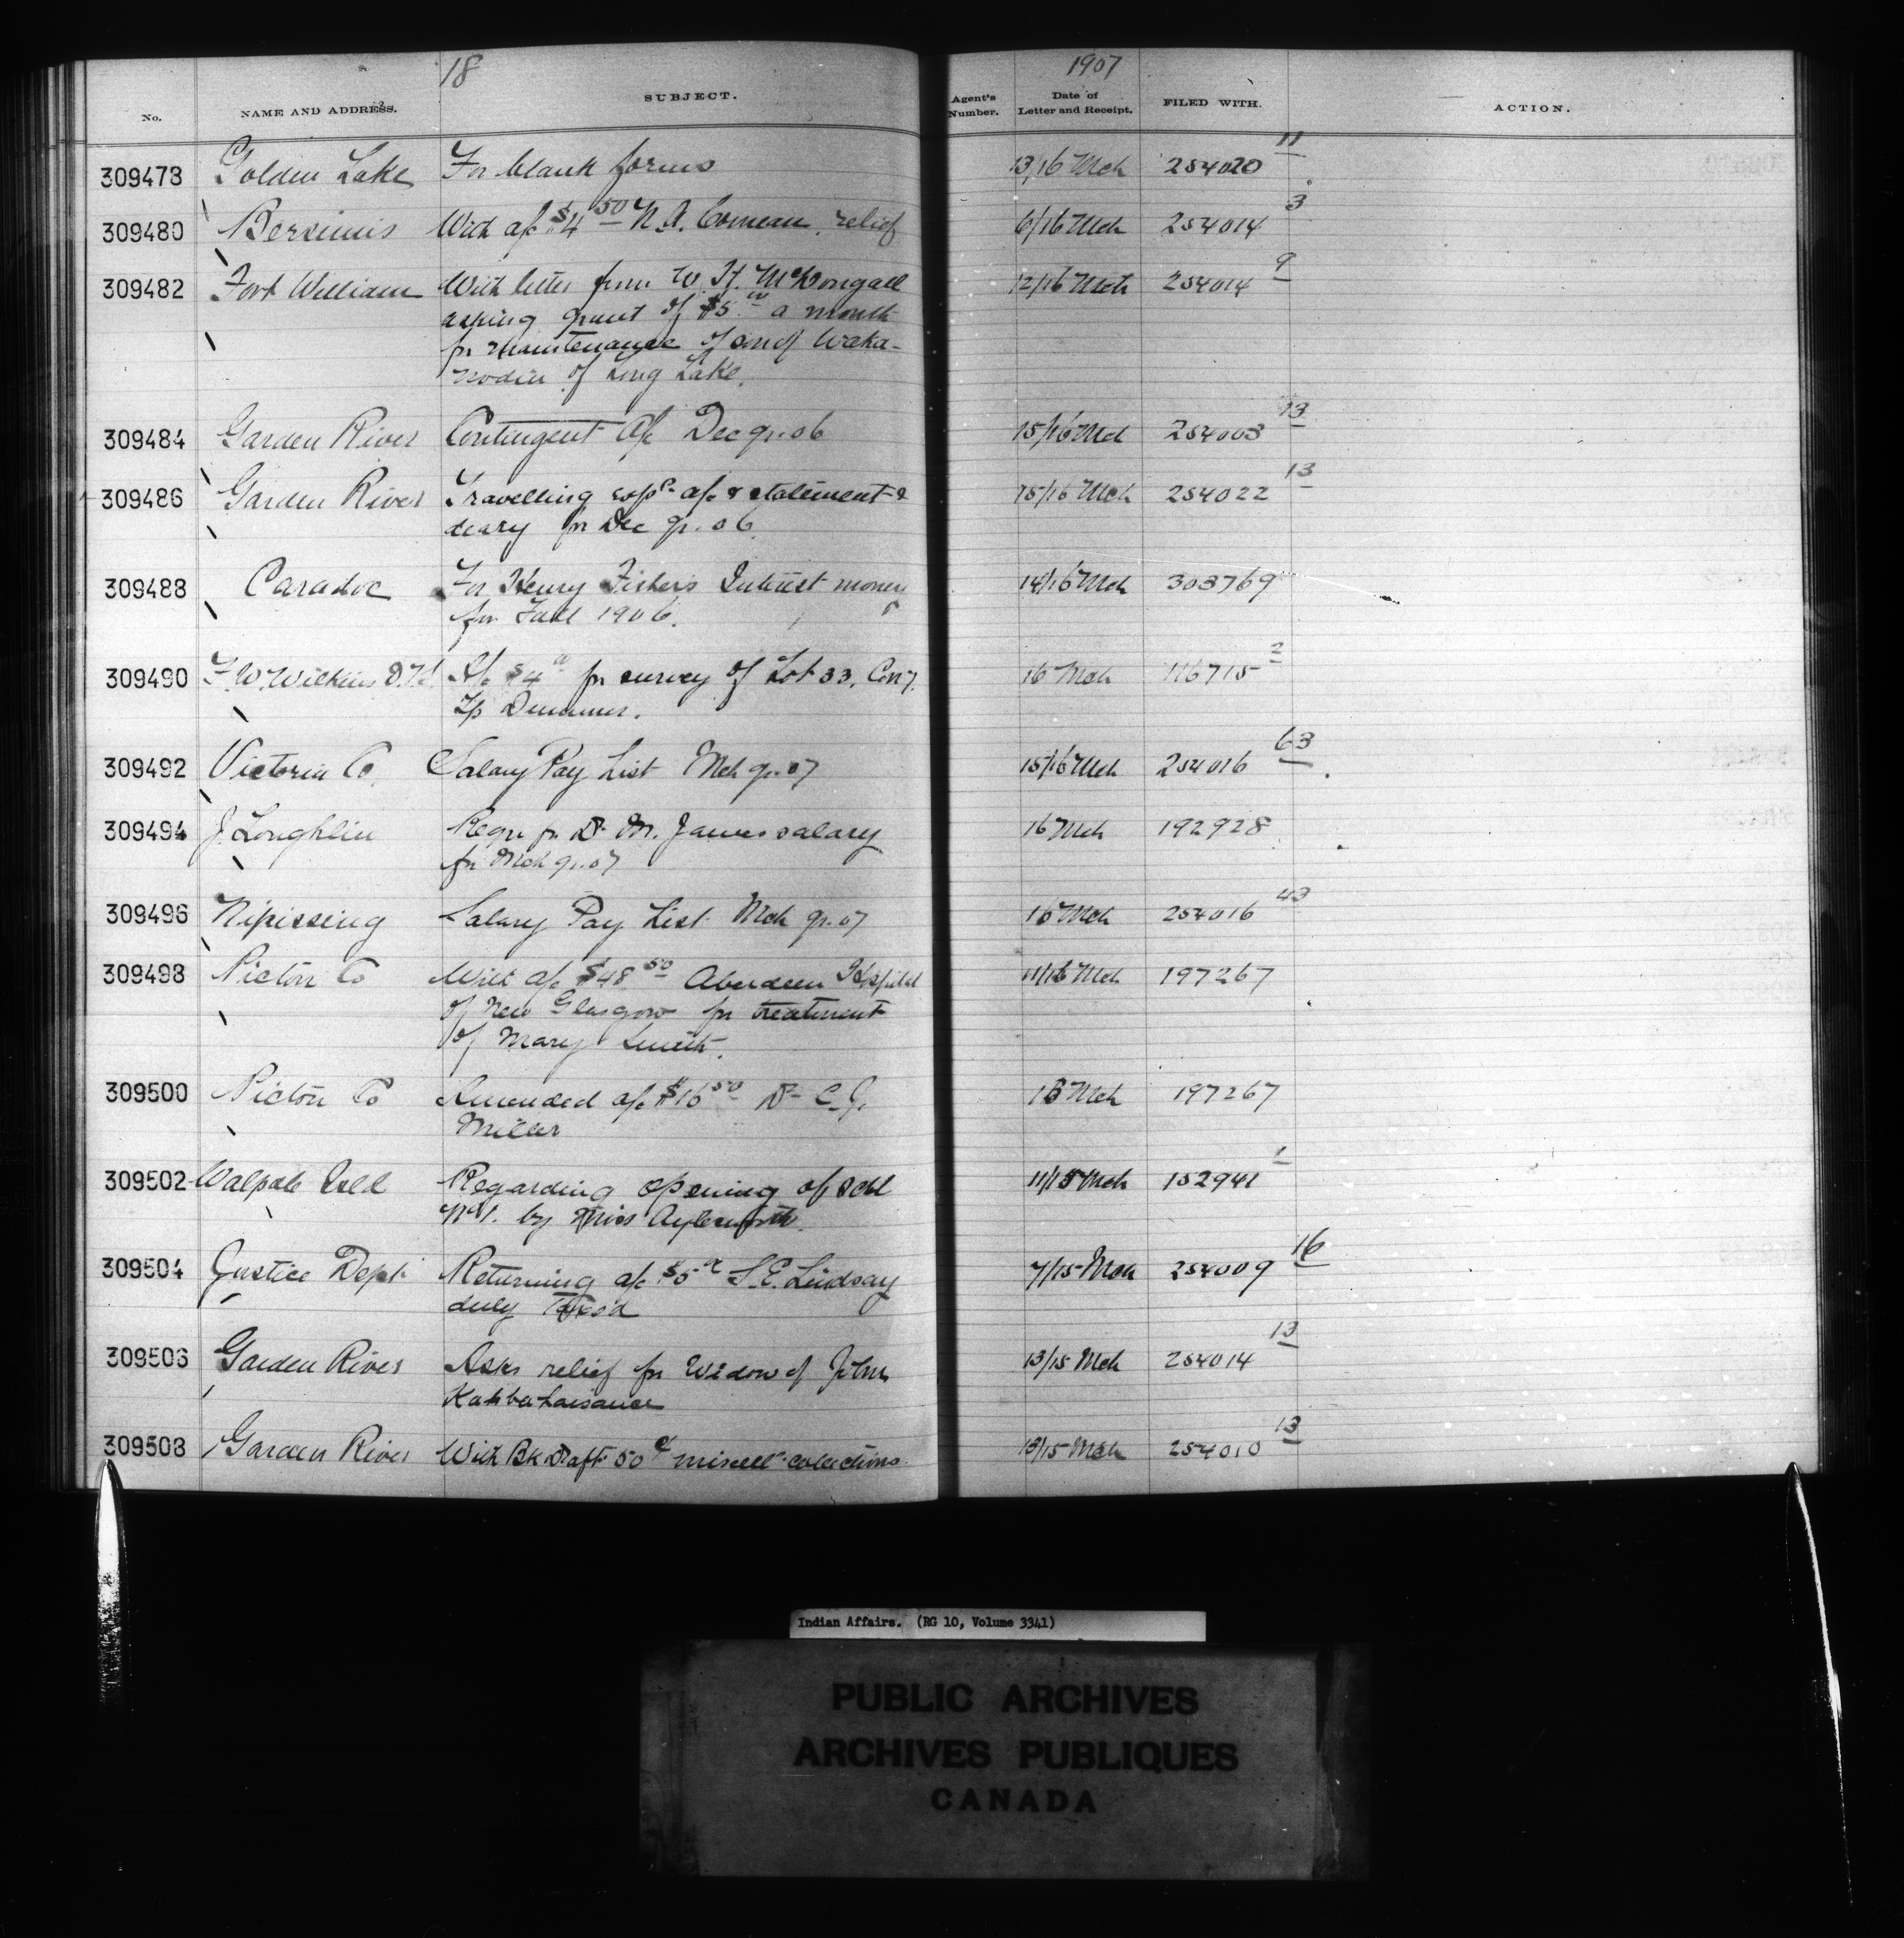 18 1907
No. NAME AND ADDRESS. SUBJECT. Agent's Number. Date of Letter and Receipt. FILED WITH. ACTION.
309478 Golden Lake For blank forms 13/16 Mch 254020 11
309480 Bersimis With a/c $4 50 N. A. Comeau, relief 6/16 Mch 254014 3
309482 Fort William With letter from W. H. McDougall 12/16 Mch 254014 9
asking grant of $5 00 a month
for maintenance of son of Waka-
nodin of Long Lake.
309484 Garden River Contingent a/c Dec qr. 06 15/16 Mch 254003 13
309486 Garden River Travelling exps a/c & statement & 15/16 Mch 254022 13
diary for Dec qr. 06.
309488 Caradoc For Henry Fisher's Interest money 14/16 Mch 303769
for Fall 1906.
309490 F. W. Wilkins a/c $4 for survey of Lot 33, Con 7. 16 Mch 116715 2
Tp Dummer.
309492 Victoria Co. Salary Pay List Mch qr. 07 15/16 Mch 254016 63
309494 J. Loughlin Requ for Dr M. James salary 16 Mch 192928
for Mch qr. 07
309496 Nipissing Salary Pay List Mch qr. 07 16 Mch 254016 43
309498 Pictou Co With a/c $48 50 Aberdeen Hospital 11/16 Mch 197267
of New Glasgow for treatment
of Mary Smith.
309500 Pictou Co Amended a/c $16 50 Dr C. J. 16 Mch 197267
Miller
309502 Walpole Isld Regarding opening of Schl 11/15 Mch 152941 1
No 1. by Miss Aylesworth.
309504 Justice Dept. Returning a/c $5 S. E. Lindsay 7/15 Mch 254009 16
duly taxed
309506 Garden River Asks relief for Widow of John 13/15 Mch 254014 13
309508 Garden River With Bk Draft 50 c miscell collections 13/15 Mch 254010 13
Indian Affairs. (RG 10, Volume 3341)
PUBLIC ARCHIVES
ARCHIVES PUBLIQUES
CANADA